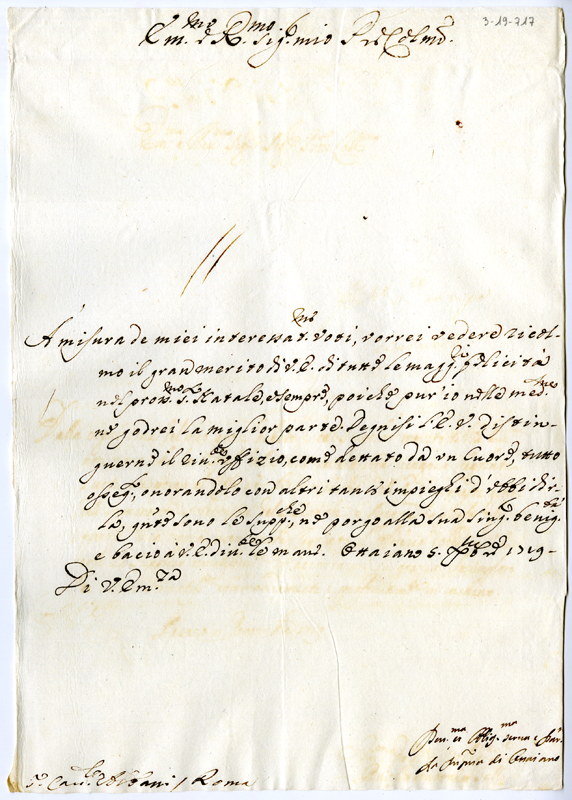 3-19-717
Em.mo e R.mo Sig.r mio Pre Colmo.
A misura de miei interessat.mi voti, vorrei vedere ricol-
mo il gran merito di V.E. di tutte le magg.ri felicità
nel pros.mo S. Natale, e sempre, poiche pur'io nelle med.me
ne godrei la miglior parte. Degnisi l'E.V. distin-
guerne il offizio, come dettato da un Cuore, tutto
osseq., onorandolo con altri tanti impieghi d'ubbidir-
la, sono le supp.che, ne porgo alla sua sing. benig.tà
e bacio à V.E. le mani. Ottaiano 5. Xbre 1719-
Di V. Em.za
Alig.ma serua
di Ottaiano
S.r Card.le Albani / Roma